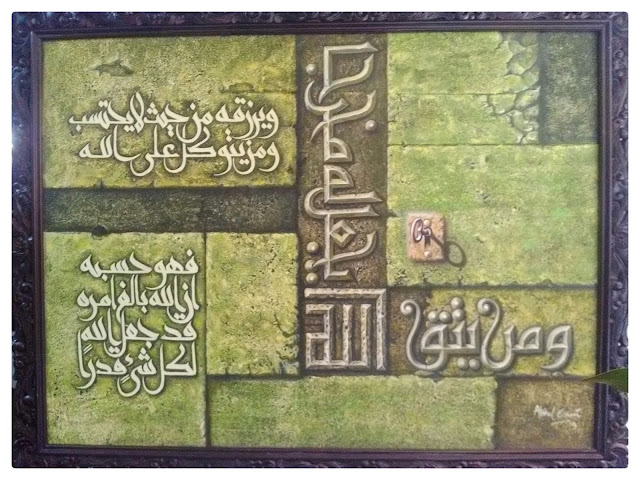 ومن يتق
الله
يجعل له مخرجا
ويرزقه من حيث لا يحتسب
ومن يتوكل على الله
فهو حسبه
ان الله بالغ امره
قد جعل الله
لكل شيءٍ قدرًا